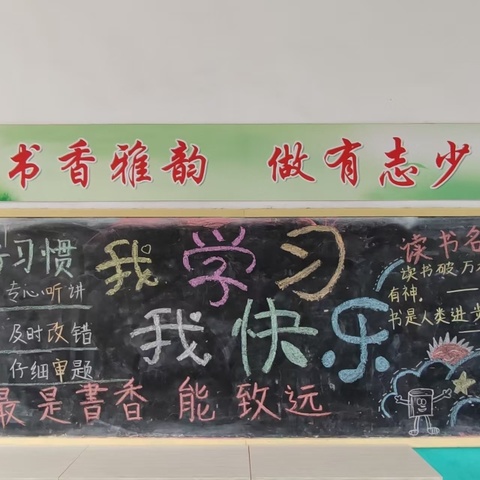 书香雅韵 做有志少
习惯
专心听讲
及时改错
仔细审题
我学习
我快乐
最是書香能致远
读书名
读书破万
有神。
书是人类进步